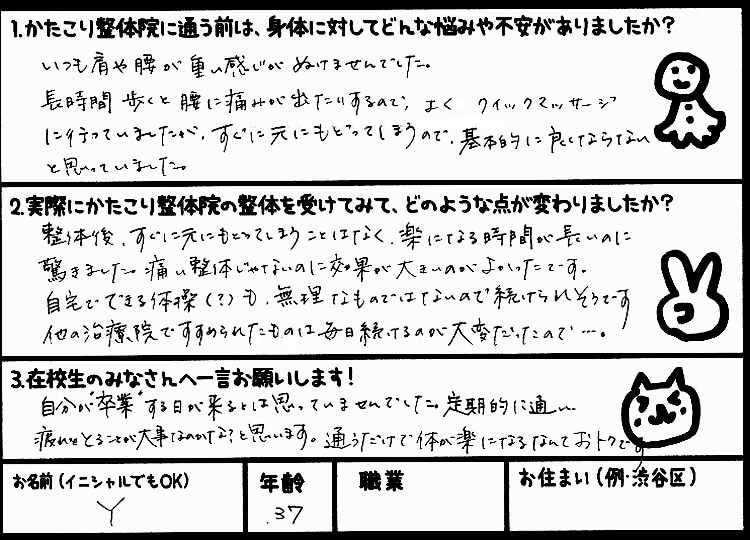 1.かたこり整体院に通う前は、身体に対してどんな悩みや不安がありましたか?
いつも肩や腰が重い感じがぬけませんでした。
長時間歩くと腰に痛みが出たりするので、よくクイックマッサージ
に行っていましたが、すぐに元にもどってしまうので、基本的に良くならない
と思っていました。
2.実際にかたこり整体院の整体を受けてみて、どのような点が変わりましたか?
整体後、すぐに元にもどってしまうことはなく、楽になる時間が長いのに
驚きました。痛い整体じゃないのに効果が大きいのがよかったです。
自宅でできる体操(?)も、無理なものではないので続けられそうです
他の治療院ですすめられたものは毎日続けるのが大変だったので…。
3.在校生のみなさんへ一言お願いします!
自分が"卒業"する日が来るとは思っていませんでした。定期的に通い
疲れをとることが大事なのかな?と思います。通うだけで体が楽になるなんておトクです
お名前(イニシャルでもOK)
Y
年齢
37
職業
お住まい(例・渋谷区)